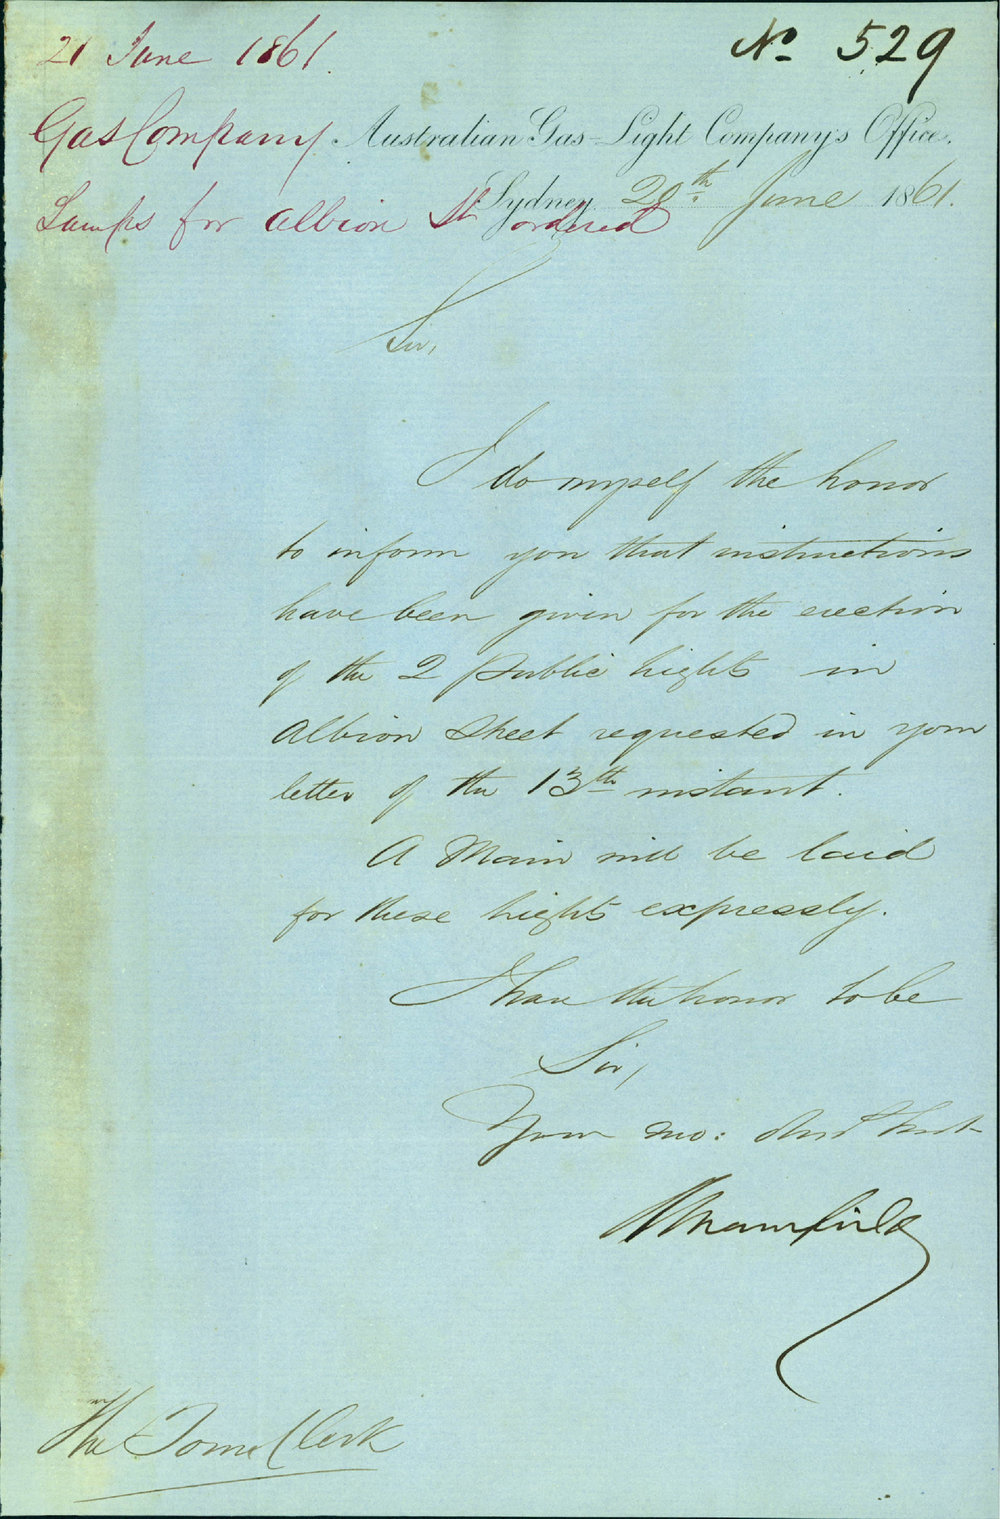 21 June 1861.
No. 529
Gas Company
Australian Gas-Light Company's Office,
Sydney 20th June 1861.
Lamps for Albion St ordered
Sir,
I do myself the honor
to inform you that instructions
have been given for the erection
of the 2 Public lights in
Albion Street requested in your
letter of the 13th instant.
A Main will be laid
for these lights expressly.
I have the honor to be
Sir,
Your mo: Obdt Servt
The Town Clerk